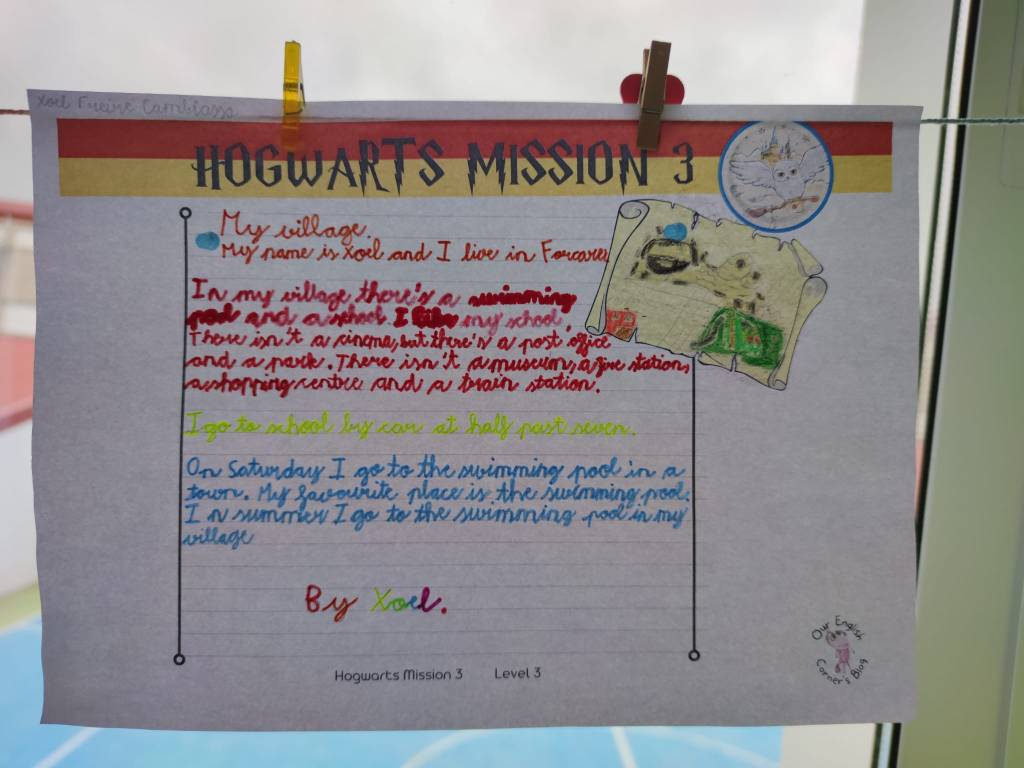 Xoel Freire Camblasso
HOGWARTS MISSION 3
My village.
My name is Xoel and I live in Forcarei
In my village there's a swimming
pool and a school. I like my school.
There isn't a cinema, but there's a post office
and a park. There isn't a museum, a fire station,
a shopping centre and a train station.
I go to school by car at half past seven.
On Saturday I go to the swimming pool in a
town. My favourite place is the swimming pool.
In summer I go to the swimming pool in my
village
By Xoel.
Hogwarts Mission 3 Level 3
Our English
Corner's Blog